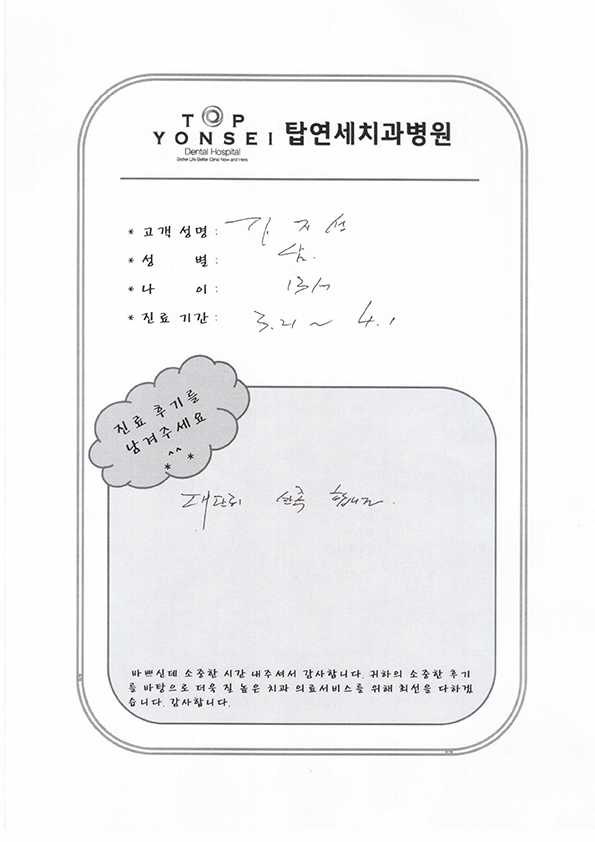 TOP
YONSEI 탑연세치과병원
Dental Hospital
Better Life Better Clinic Now and Here
* 고객성명 : 김지선
* 성 별 : 남.
* 나 이 :
* 진료기간 : 3.21 ~ 4.1
진료후기를
남겨주세요
^^
* *
대단히 만족 합니다.
바쁘신데 소중한 시간 내주셔서 감사합니다. 귀하의 소중한 후기
를 바탕으로 더욱 질 높은 치과 의료서비스를 위해 최선을 다하겠
습니다. 감사합니다.